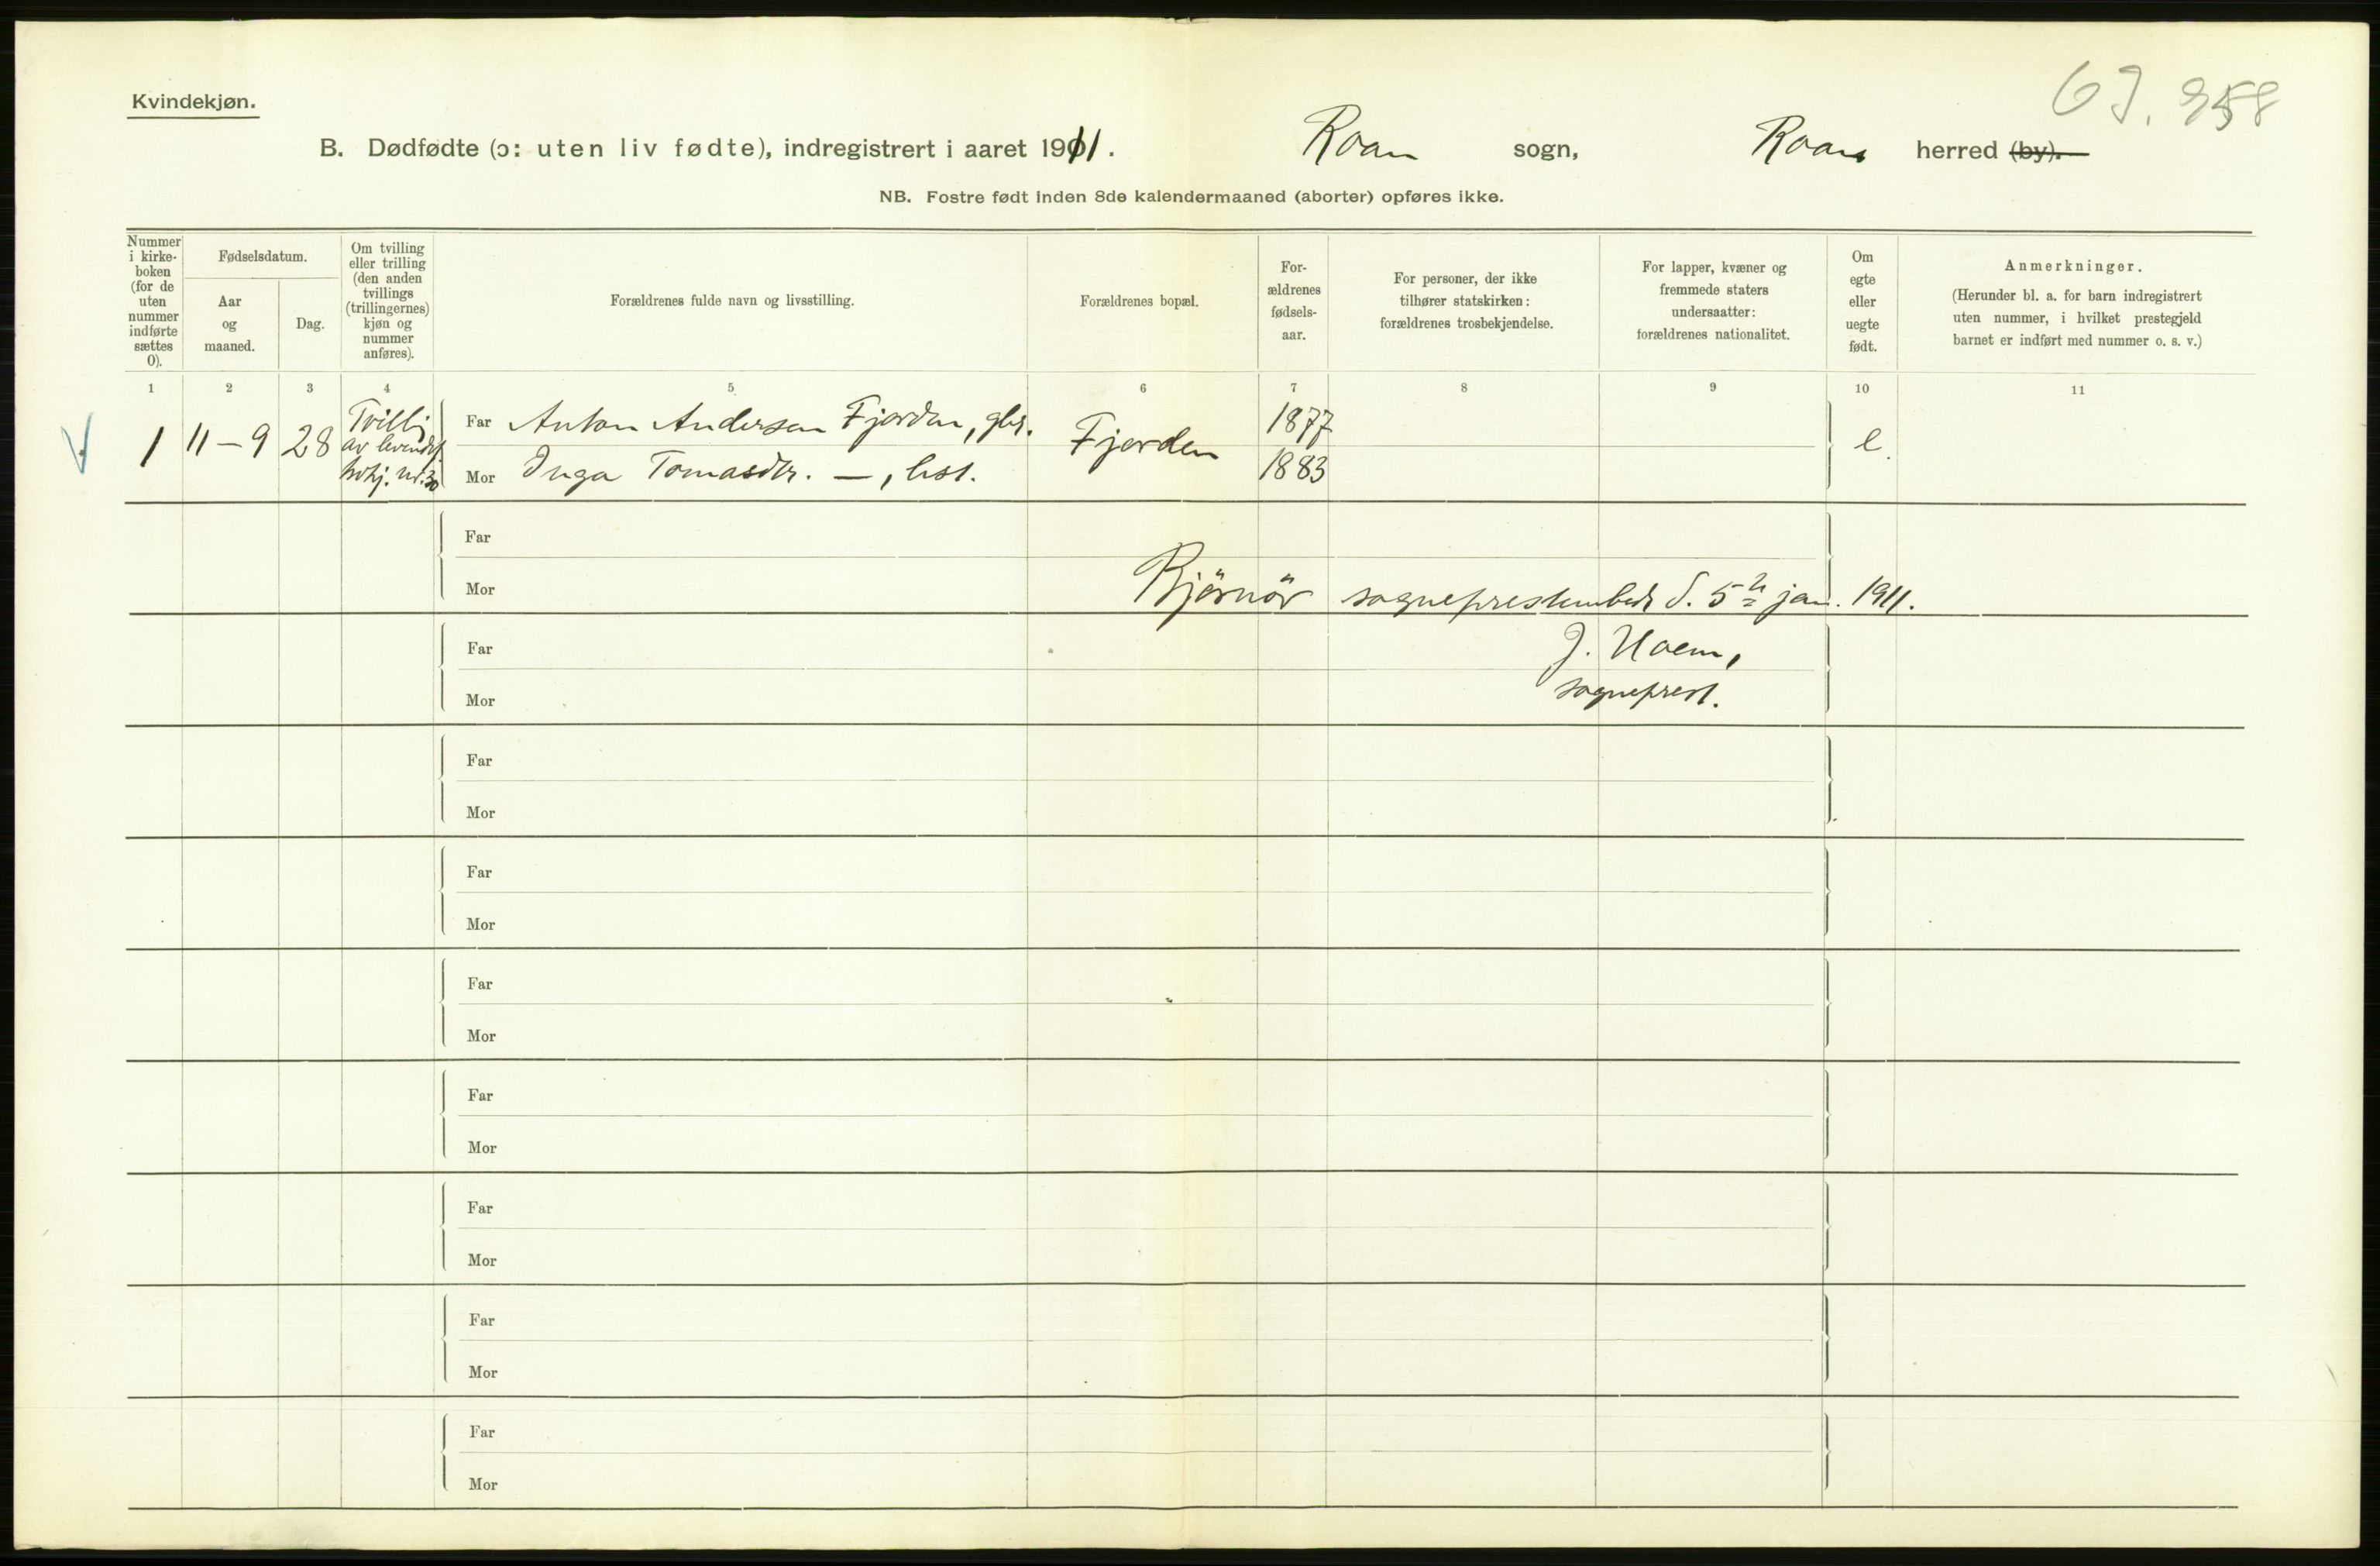 Kvindekjøn.
63. 358
B. Dødfødte (ɔ: uten liv fødte), indregistrert i aaret 1911. Roan sogn, Roan herred (by).
NB. Fostre født inden 8de kalendermaaned (aborter) opføres ikke.
Nummer i kirke-boken (for de uten nummer indførte sættes 0).
Fødselsdatum.
Aar og maaned.
Dag.
Om tvilling eller trilling (den anden tvillings (trillingernes) kjøn og nummer anføres).
Forældrenes fulde navn og livsstilling.
Forældrenes bopæl.
For-ældrenes fødsels-aar.
For personer, der ikke tilhører statskirken: forældrenes trosbekjendelse.
For lapper, kvæner og fremmede staters undersaatter: forældrenes nationalitet.
Om egte eller uegte født.
Anmerkninger.
(Herunder bl. a. for barn indregistrert uten nummer, i hvilket prestegjeld barnet er indført med nummer o. s. v.)
1 2 3 4 5 6 7 8 9 10 11
1 11–9 28 Tvilli av levendef. kvkj. nr. 30
Far Anton Andersen Fjorden, gbr. Fjorden 1877 e.
Mor Inga Tomasdtr. —, hst. 1883
Far
Mor
Bjørnør sogneprestembede d. 5te jan. 1911.
Far
J. Hoem,
Mor
sogneprest.
Far
Mor
Far
Mor
Far
Mor
Far
Mor
Far
Mor
Far
Mor
Far
Mor